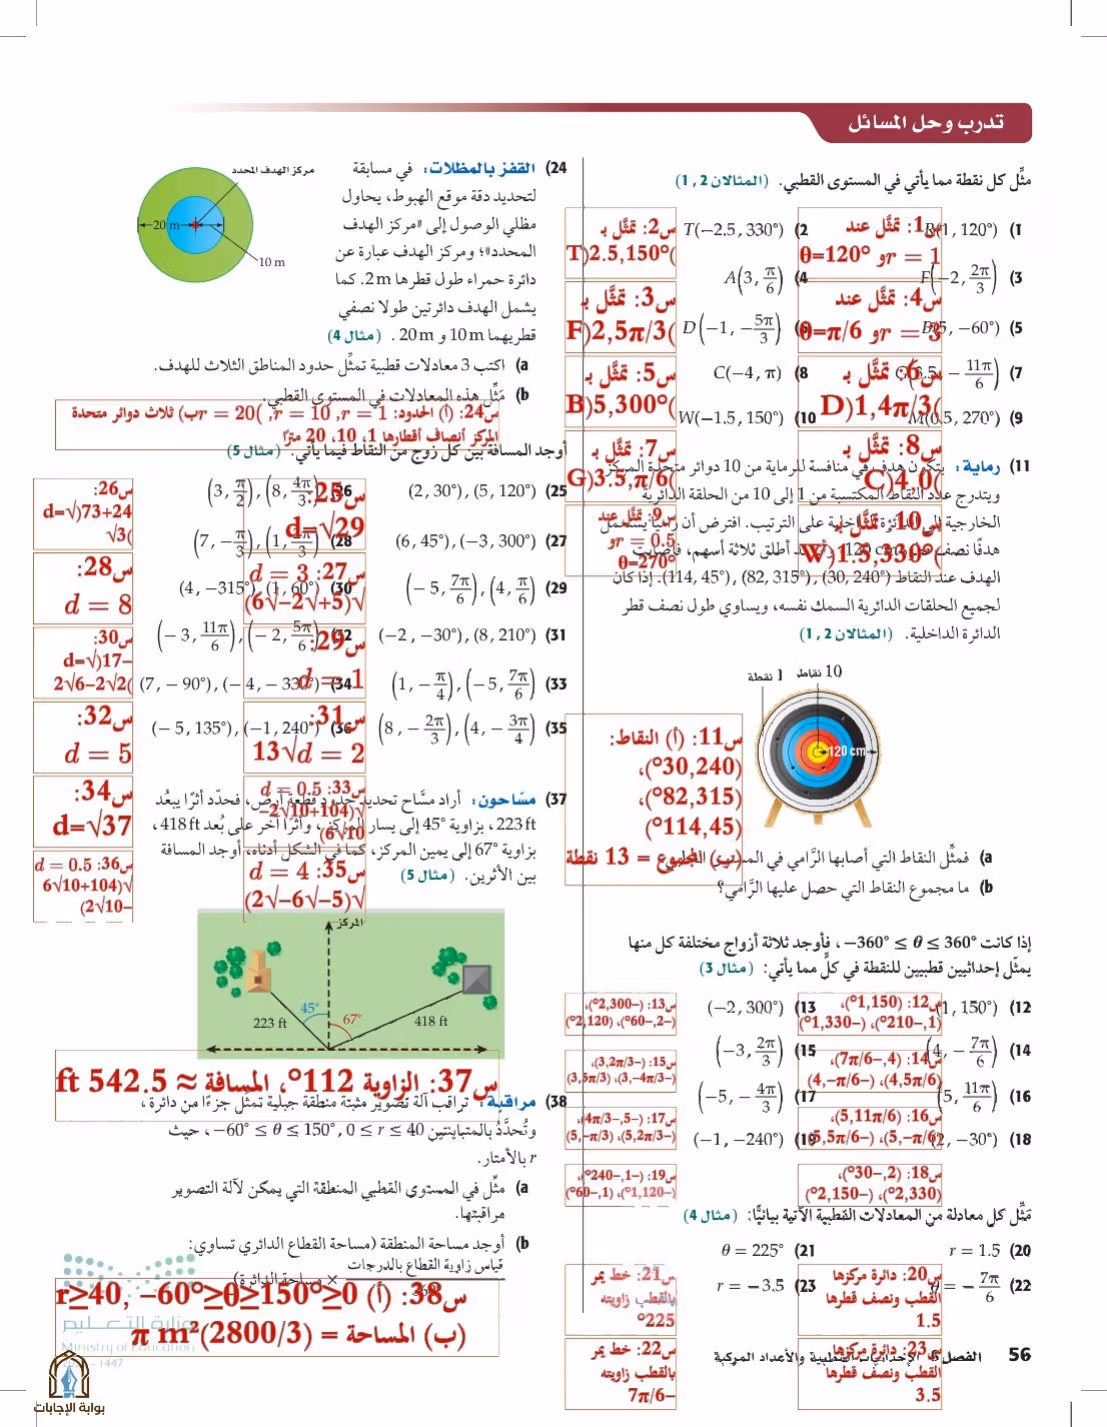 تدرب وحل المسائل
مثّل كل نقطة مما يأتي في المستوى القطبي. (المثالان 1, 2)
(1 R(1, 120°)
(2 T(−2.5, 330°)
(3 F(−2, 2π/3)
(4 A(3, π/6)
(5 B(5, −60°)
(6 D(−1, −5π/3)
(7 G(3.5, −11π/6)
(8 C(−4, π)
(9 M(0.5, 270°)
(10 W(−1.5, 150°)
س1: تمثَّل عند
θ=120° و r = 1
س2: تمثَّل بـ
T(2.5,150°)
س3: تمثَّل بـ
F(2,5π/3)
س4: تمثَّل عند
θ=π/6 و r = 3
س5: تمثَّل بـ
B(5,300°)
س6: تمثَّل بـ
D(1,4π/3)
س7: تمثَّل بـ
G(3.5,π/6)
س8: تمثَّل بـ
C(4,0)
س9: تمثَّل عند
r = 0.5 و
θ=270°
س10: تمثَّل بـ
W(1.5,330°)
(11 رماية: يتكون هدف في منافسة للرماية من 10 دوائر متحدة المركز
ويتدرج عدد النقاط المكتسبة من 1 إلى 10 من الحلقة الدائرية
الخارجية إلى الدائرة الداخلية على الترتيب. افترض أن راميًا يستعمل
هدفًا نصف 120 cm أطلق ثلاثة أسهم، فأصابت
الهدف عند النقاط (30, 240°), (82, 315°), (114, 45°). إذا كان
لجميع الحلقات الدائرية السمك نفسه، ويساوي طول نصف قطر
الدائرة الداخلية. (المثالان 1, 2)
10 نقاط
1 نقطة
120 cm
س11: (أ) النقاط:
(30,240°)،
(82,315°)،
(114,45°)
(ب) المجموع = 13 نقطة
(a فمثِّل النقاط التي أصابها الرَّامي في المستوى القطبي.
(b ما مجموع النقاط التي حصل عليها الرَّامي؟
إذا كانت −360° ≤ θ ≤ 360°، فأوجد ثلاثة أزواج مختلفة كل منها
يمثّل إحداثيين قطبيين للنقطة في كلٍّ مما يأتي: (مثال 3)
(12 (1, 150°)
(13 (−2, 300°)
(14 (4, −7π/6)
(15 (−3, 2π/3)
(16 (5, 11π/6)
(17 (−5, −4π/3)
(18 (2, −30°)
(19 (−1, −240°)
س12: (1,150°)،
(1,−210°)، (−1,330°)
س13: (−2,300°)،
(−2,−60°)، (2,120°)
س14: (4,−7π/6)،
(4,5π/6)، (−4,−π/6)
س15: (−3,2π/3)،
(−3,−4π/3)، (3,5π/3)
س16: (5,11π/6)،
(5,−π/6)، (−5,5π/6)
س17: (−5,−4π/3)،
(−5,2π/3)، (5,−π/3)
س18: (2,−30°)،
(2,330°)، (−2,150°)
س19: (−1,−240°)،
(−1,120°)، (1,−60°)
مَثّل كل معادلة من المعادلات القطبية الآتية بيانيًّا: (مثال 4)
(20 r = 1.5
(21 θ = 225°
(22 θ = −7π/6
(23 r = −3.5
س20: دائرة مركزها
القطب ونصف قطرها
1.5
س21: خط يمر
بالقطب زاويته
225°
س22: خط يمر
بالقطب زاويته
−7π/6
س23: دائرة مركزها
القطب ونصف قطرها
3.5
(24 القفز بالمظلات: في مسابقة
لتحديد دقة موقع الهبوط، يحاول
مظلي الوصول إلى «مركز الهدف
المحدد»؛ ومركز الهدف عبارة عن
دائرة حمراء طول قطرها 2 m. كما
يشمل الهدف دائرتين طولا نصفي
قطريهما 10 m و 20 m . (مثال 4)
مركز الهدف المحدد
20 m
10 m
(a اكتب 3 معادلات قطبية تمثِّل حدود المناطق الثلاث للهدف.
(b مَثِّل هذه المعادلات في المستوى القطبي.
س24: (أ) الحدود: r = 1, r = 10, r = 20 (ب) ثلاث دوائر متحدة
المركز أنصاف أقطارها 1، 10، 20 مترًا
أوجد المسافة بين كل زوج من النقاط فيما يأتي. (مثال 5)
(25 (2, 30°), (5, 120°)
(26 (3, π/2), (8, 4π/3)
(27 (6, 45°), (−3, 300°)
(28 (7, −π/3), (1,
(29 (−5, 7π/6), (4, π/6)
(30 (4, −315°), (1, 60°)
(31 (−2, −30°), (8, 210°)
(32 (−3, 11π/6), (−2, 5π/6)
(33 (1, −π/4), (−5, 7π/6)
(34 (7, −90°), (−4, −330°)
(35 (8, −2π/3), (4, −3π/4)
(36 (−5, 135°), (−1, 240°)
س25:
d=√29
س26:
d=√(73+24
√3)
س27: d = 3
√(5+2√−6√)
س28:
d = 8
س29:
d = 1
س30:
d=√(17−
2√6−2√2)
س31:
d = 2√13
س32:
d = 5
س33: d = 0.5
√(104+10√2−
10√6)
س34:
d=√37
س35: d = 4
√(5−√6−√2)
س36: d = 0.5
√(104+10√6
−10√2)
(37 مسّاحون: أراد مسَّاح تحديد حدود قطعة أرض، فحدّد أثرًا يبعُد
223 ft ، بزاوية 45° إلى يسار المركز، وأثرًا آخر على بُعد 418 ft ،
بزاوية 67° إلى يمين المركز، كما في الشكل أدناه، أوجد المسافة
بين الأثرين. (مثال 5)
المركز
45°
67°
223 ft
418 ft
س37: الزاوية 112°، المسافة ≈ 542.5 ft
(38 مراقبة: تراقب آلة تصوير مثبتة منطقة جبلية تمثل جزءًا من دائرة،
وتُحدَّدُ بالمتباينتين −60° ≤ θ ≤ 150°, 0 ≤ r ≤ 40، حيث
r بالأمتار.
(a مثِّل في المستوى القطبي المنطقة التي يمكن لآلة التصوير
مراقبتها.
(b أوجد مساحة المنطقة (مساحة القطاع الدائري تساوي:
قياس زاوية القطاع بالدرجات
360° × مساحة الدائرة)
س38: (أ) 0≤r≤40, −60°≤θ≤150°
(ب) المساحة = (2800/3)π m²
وزارة التعليم
Ministry of Education
1447
بوابة الإجابات
56 الفصل 5 الإحداثيات القطبية والأعداد المركبة